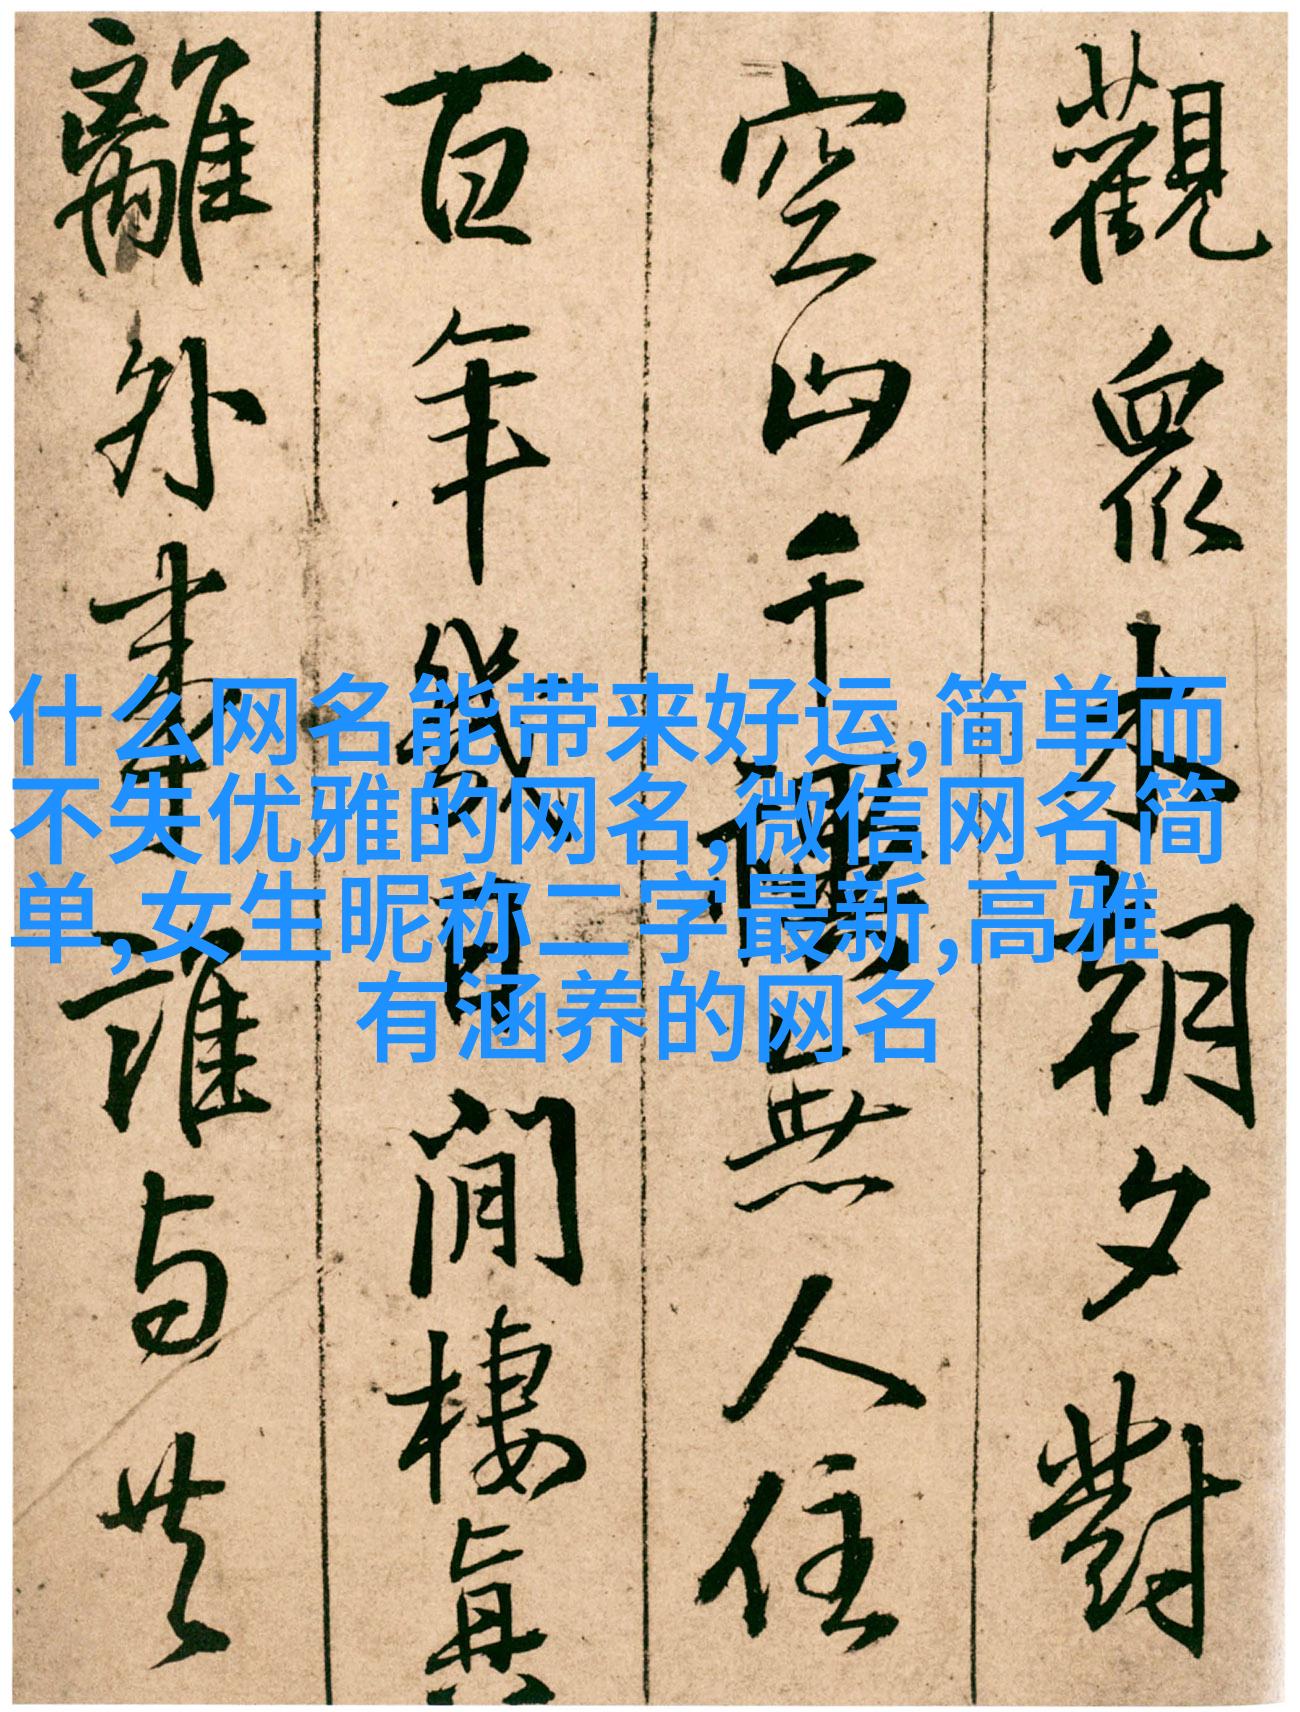 觀眾未朝夕對
空山千疊無人住
百年幾日閒棲真
離外事誰与共
什么网名能带来好运,简单而
不失优雅的网名,微信网名简
单,女生昵称二字最新,高雅
有涵养的网名